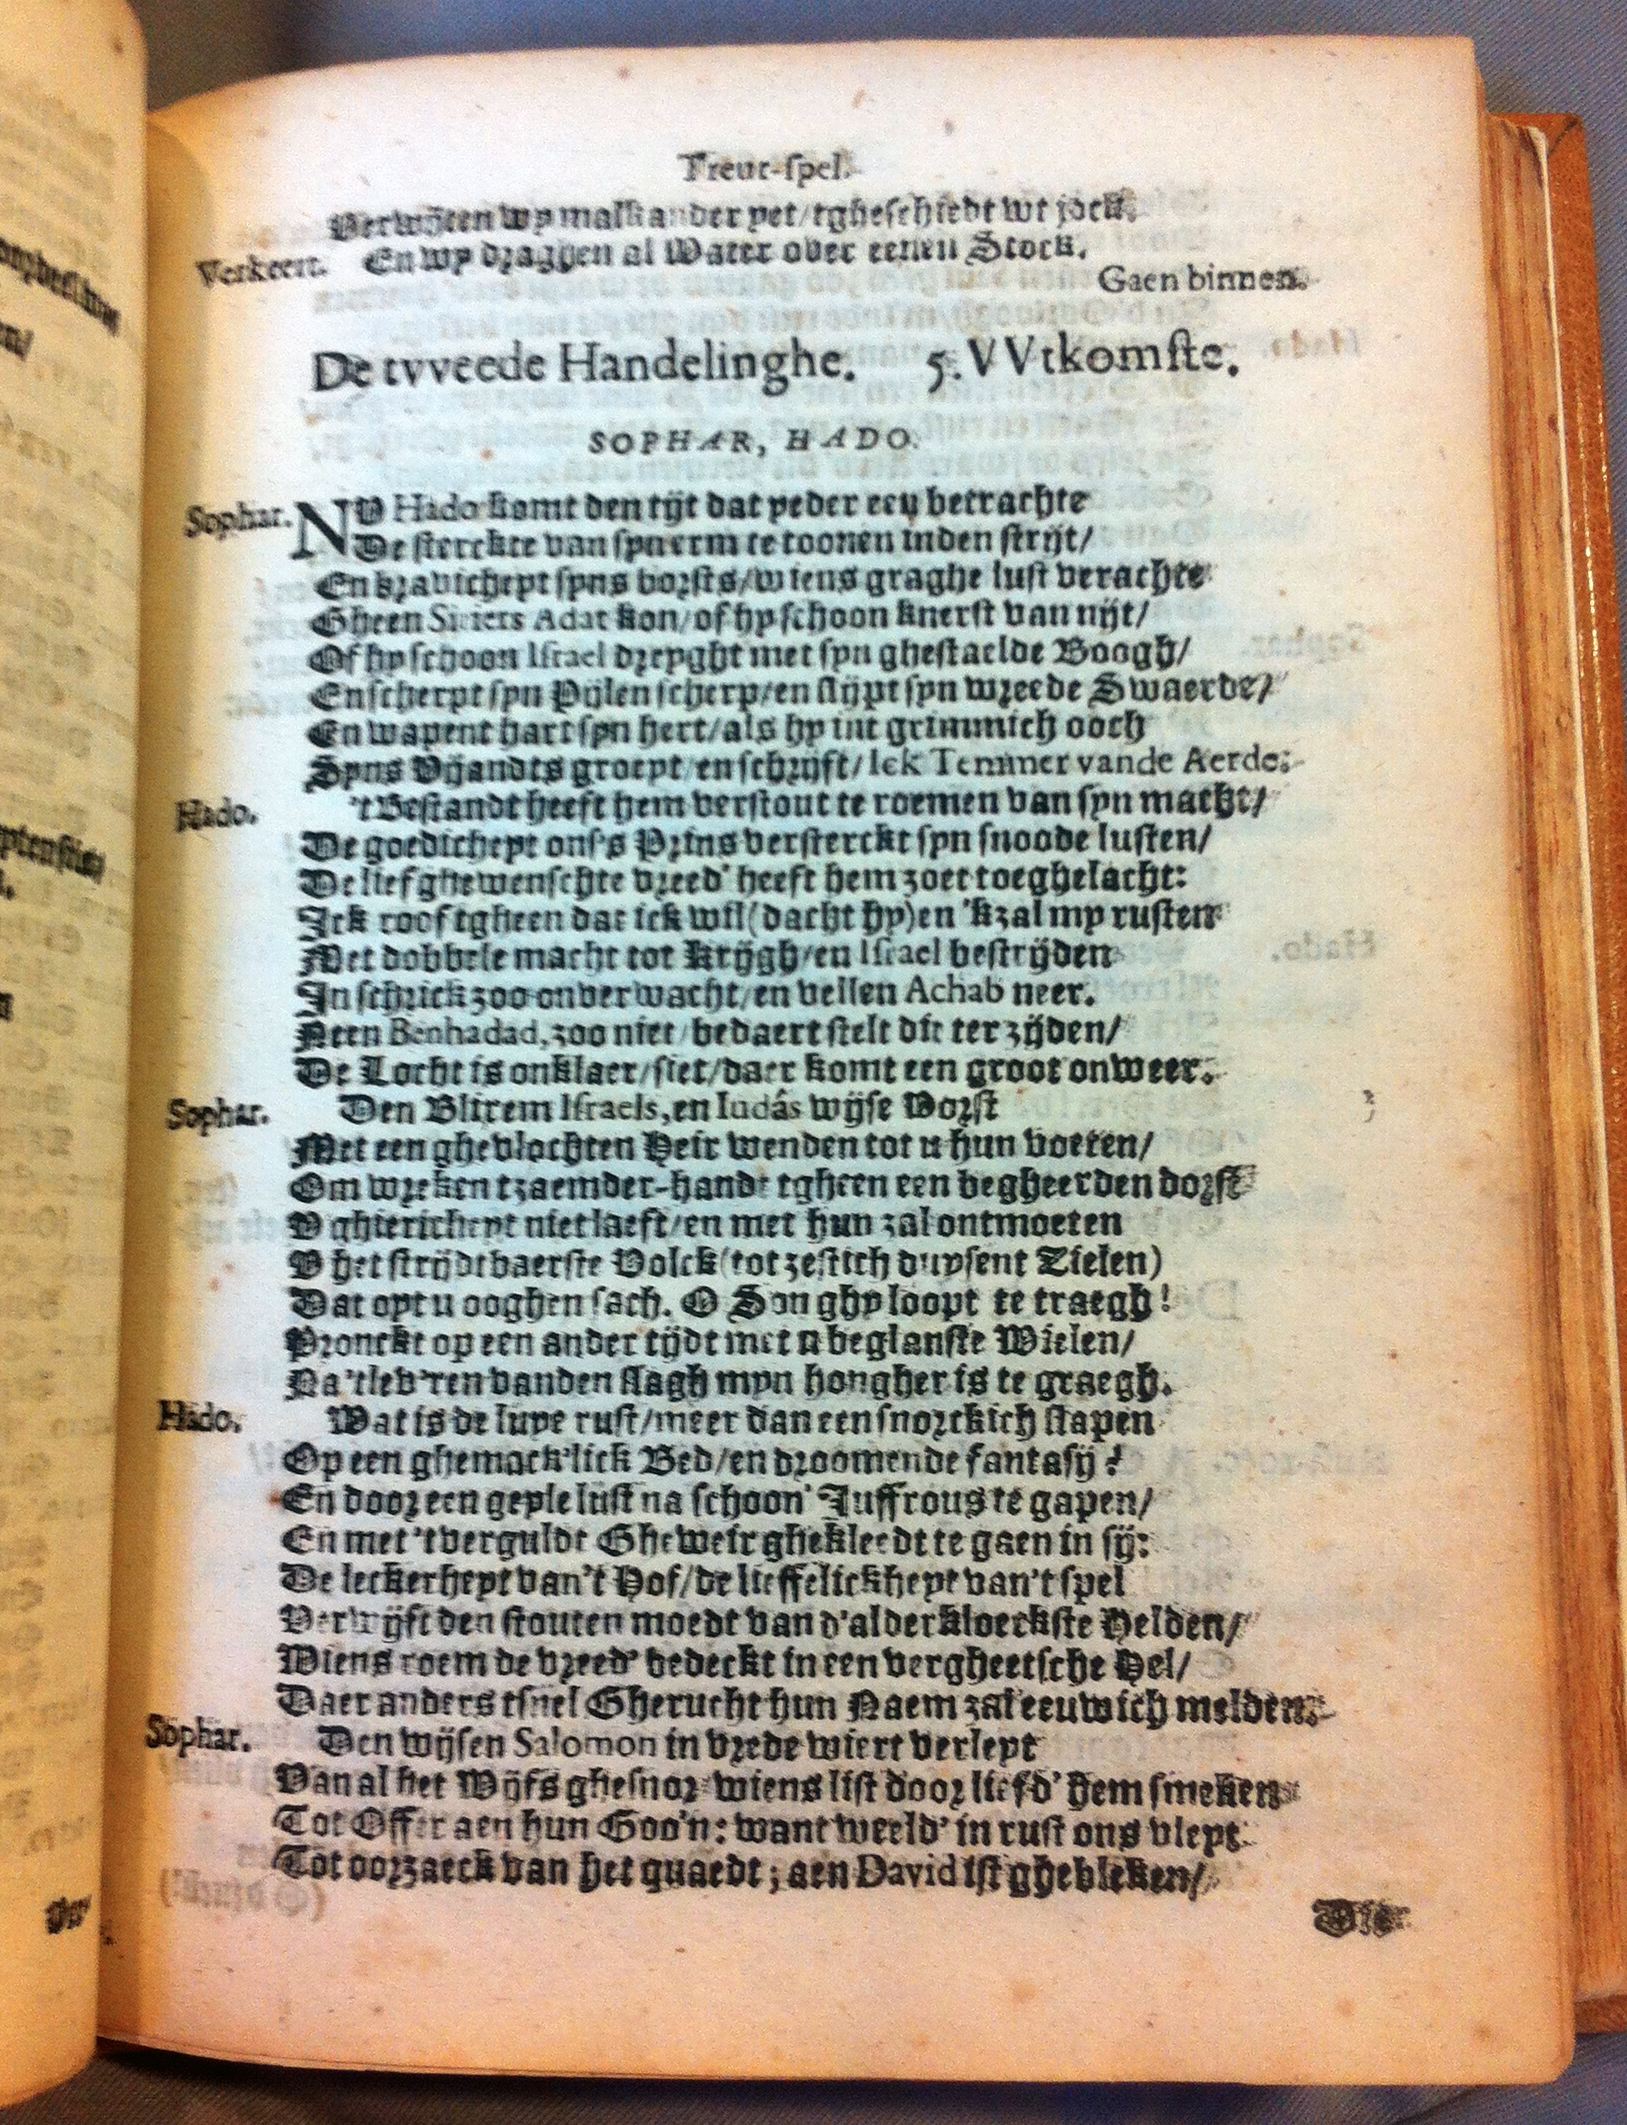 Treur-spel.
Verwijten wy malkander yet/tgheschiedt wt jock.
Verkeert. En wy draghen al Water over eenen Stock.
Gaen binnen.
De tvveede Handelinghe. 5. VVtkomste.
SOPHAR, HADO.
Sophar. NV Hado komt den tijt dat yeder een betrachte
De sterckte van syn erm te toonen inden strijt/
En kravicheyt syns borsts/wiens graghe lust verachte
Gheen Siriers Adat kon/of hy schoon knerst van nijt/
Of hy schoon Israel dreyght met syn ghestaelde Boogh/
En scherpt syn Pijlen scherp/en slijpt syn wreede Swaerde/
En wapent hart syn hert/als hy int grimmich ooch
Syns Vijandts groeyt/en schrijft/Iek Temmer vande Aerde.
Hado. 't Bestandt heeft hem verstout te roemen van syn macht/
De goedicheyt ons's Prins versterckt syn snoode lusten/
De lief ghewenschte vreed' heeft hem zoet toeghelacht:
Ick roof tgheen dat ick wil (dacht hy) en 'k zal my rusten
Met dobbele macht tot Krijgh/en Israel bestrijden
In schrick zoo onverwacht/en vellen Achab neer.
Neen Benhadad, zoo niet/bedaert stelt dit ter zijden/
De Locht is onklaer/siet/daer komt een groot onweer.
Sophar. Den Blixem Israels, en Iudás wijse Vorst
Met een ghevlochten Heir wenden tot u hun voeten/
Om wreken tzaemder-handt tgheen een begheerden dorst
V ghiericheyt niet laeft/en met hun zal ontmoeten
V het strijdtbaerste Volck (tot zestich duysent Zielen)
Dat oyt u ooghen sach. O Son ghy loopt te traegh!
Pronckt op een ander tijdt met u beglanste Wielen/
Na 'tlev'ren vanden slagh myn hongher is te graegh.
Hado. Wat is de luye rust/meer dan een snorckich slapen
Op een ghemack'lick Bed/en droomende fantasij?
En door een geyle lust na schoon' Juffrous te gapen/
En met 't verguldt Gheweir ghekleedt te gaen in sij:
De leckerheyt van't Hof/de lieffelickheyt van't spel
Verwijft den stouten moedt van d'alderkloeckste Helden/
Wiens roem de vreed' bedeckt in een vergheetsche Hel/
Daer anders tsnel Gherucht hun Naem zal eeuwich melden.
Sophar. Den wijsen Salomon in vrede wiert verleyt
Van al het Wijfs ghesnor wiens list door liefd' hem smeken
Tot Offer aen hun Goo'n: want weeld' in rust ons vleyt
Tot oorzaeck van het quaedt; aen David ist ghebleken/
Die